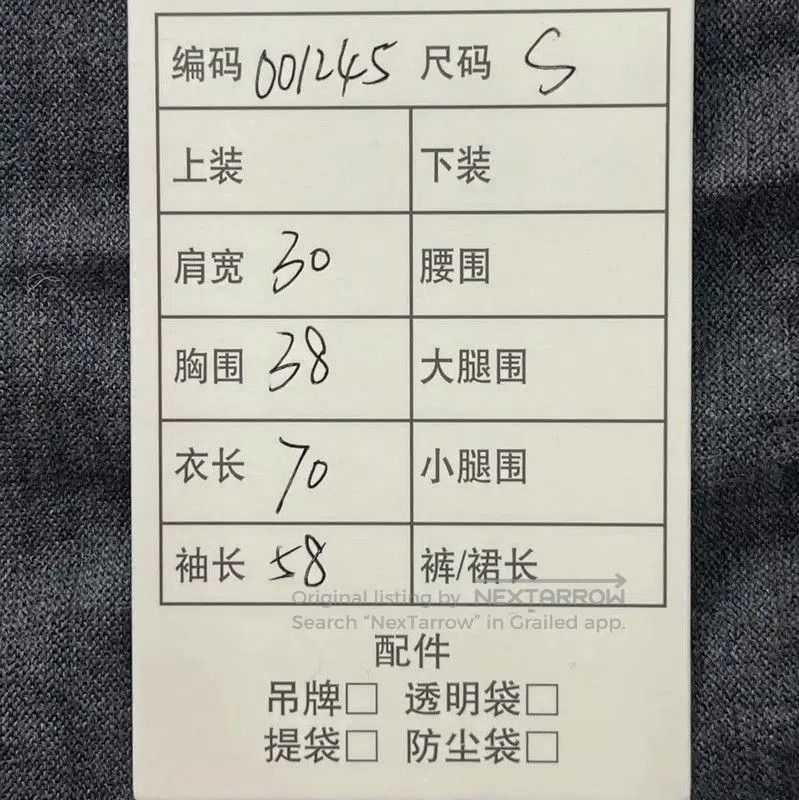 编码 001245 尺码 S
上装 下装
肩宽 30 腰围
胸围 38 大腿围
衣长 70 小腿围
袖长 58 裤/裙长
Original listing by NEXTARROW
Search “NexTarrow” in Grailed app.
配件
吊牌□ 透明袋□
提袋□ 防尘袋□